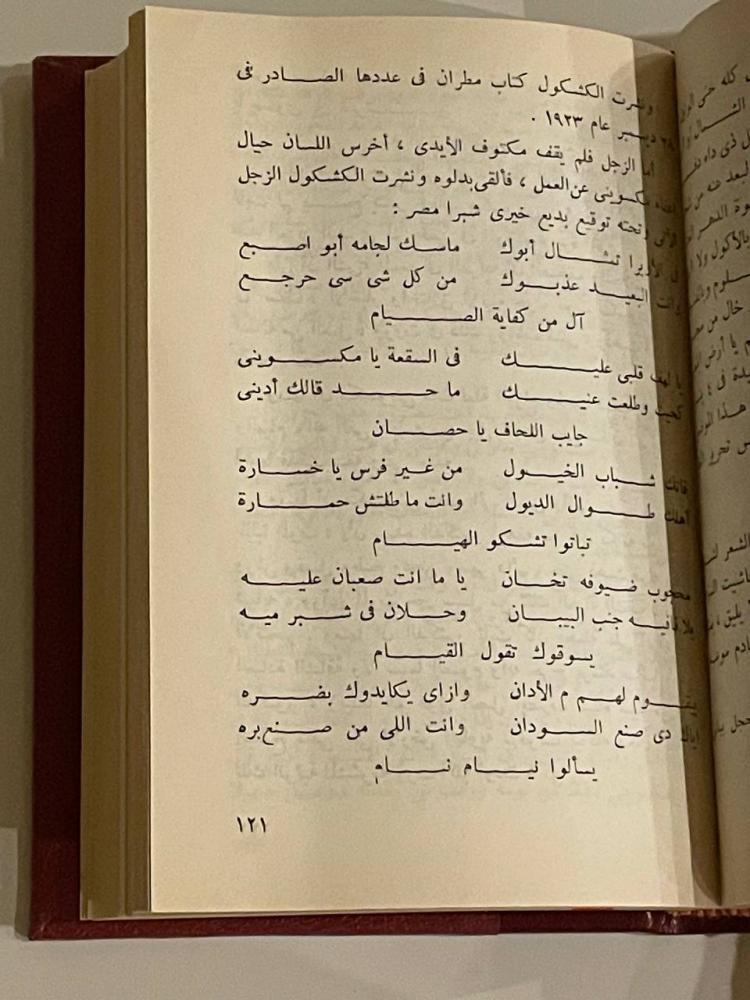 ونشرت الكشكول كتاب مطران فى عددها الصادر فى
ديسمبر عام ١٩٢٣ .
أما الزجل فلم يقف مكتوف الأيدى ، أخرس اللسان حيال
مكسوينى عن العمل ، فألقى بدلوه ونشرت الكشكول الزجل
الآتى وتحته توقيع بديع خيرى شبرا مصر :
فى الأوبرا تمثال أبوك ماسك لجامه أبو اصبع
وانت البعيد عذبوك من كل شى سى حرجع
آل من كفاية الصيام
يا لهف قلبى عليك فى السقعة يا مكسوينى
كحيت وطلعت عنيك ما حد قالك أدينى
جايب اللحاف يا حصان
فاتك شباب الخيول من غير فرس يا خسارة
أهلك طوال الديول وانت ما طلتش حمارة
تباتوا تشكو الهيام
محجوب ضيوفه تخان يا ما انت صعبان عليه
جنب البيبان وحلان فى شبر ميه
يوقوك تقول القيام
يقوم لهم م الأدان وازاى يكايدوك بضره
دى صنع السودان وانت اللى من صنع بره
يسألوا نيام نام
كله حتى
الشمال
ذى داء
البعد عنه من
الدهر
بالأكول ولا
خال من
يا أرض
هذا
الشعر
يليق ،
١٢١